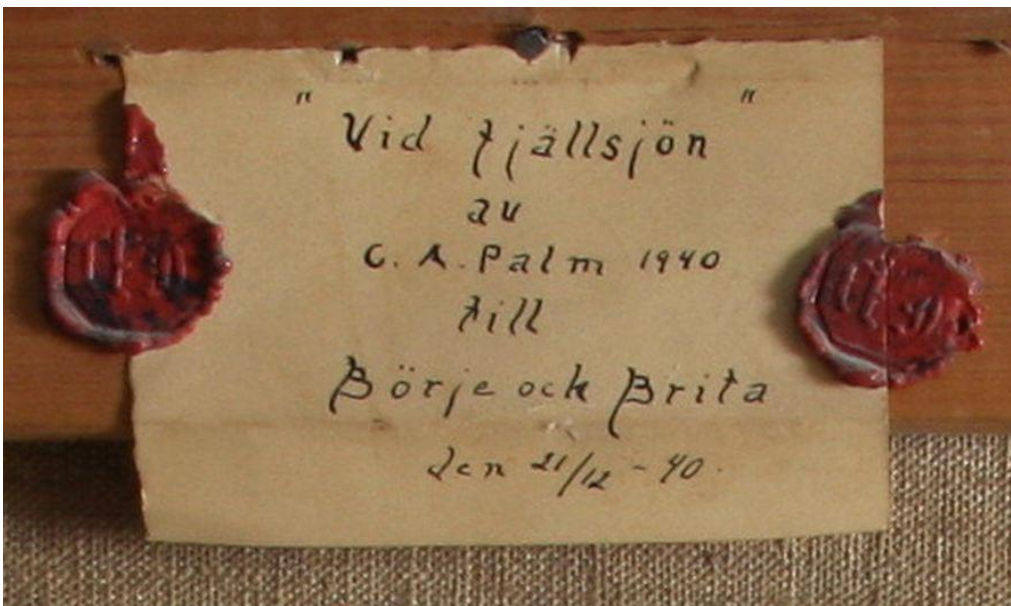 "Vid fjällsjön"
av
C. A. Palm 1940
till
Börje och Brita
den 21/12 - 40.